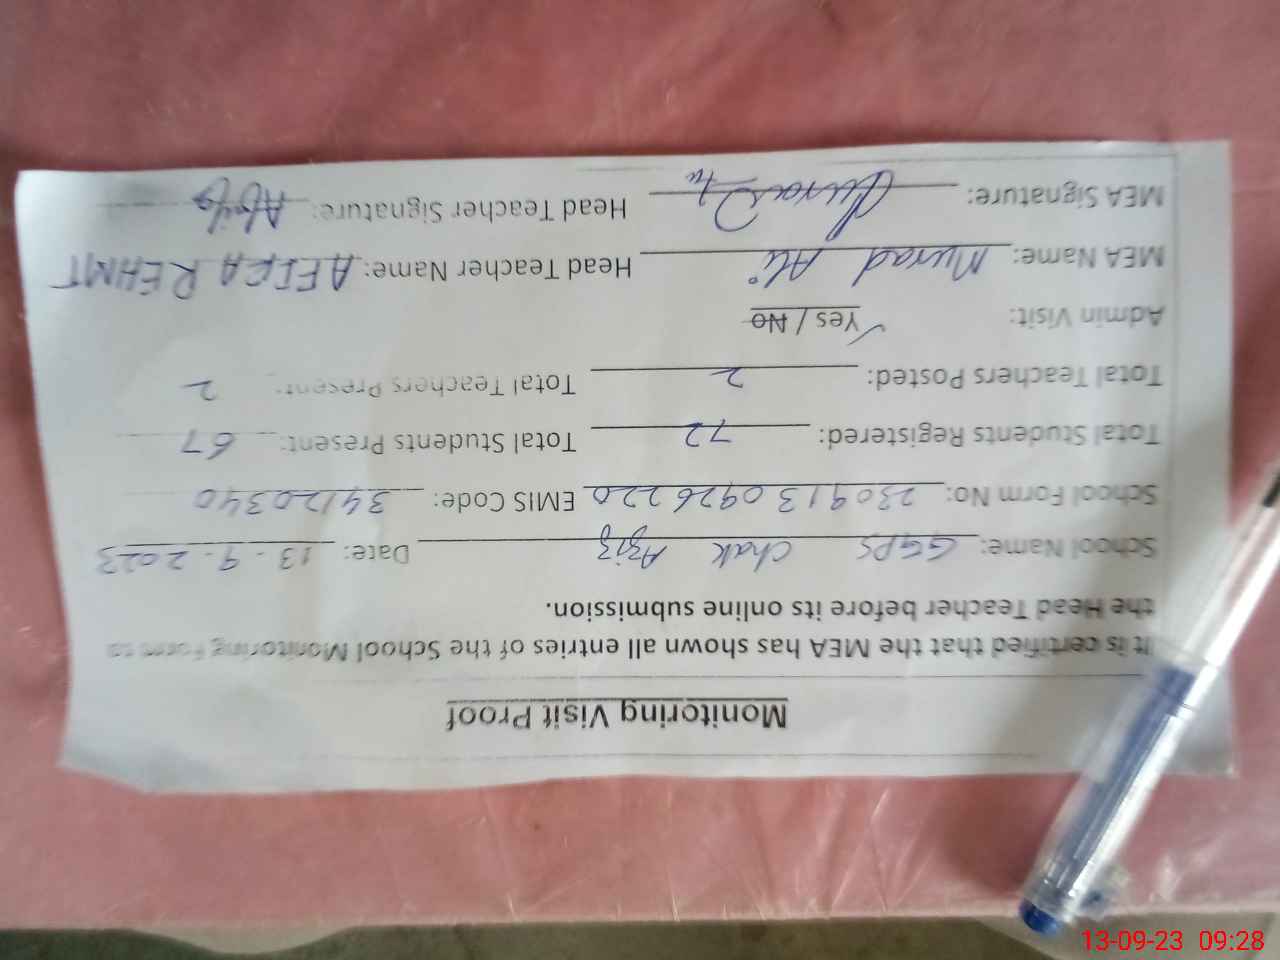 Monitoring Visit Proof
It is certified that the MEA has shown all entries of the School Monitoring Form to
the Head Teacher before its online submission.
School Name: GGPS Chak Aziz Date: 13-9-2023
School Form No: 230913092622 0 EMIS Code: 34120340
Total Students Registered: 72 Total Students Present: 67
Total Teachers Posted: 2 Total Teachers Present: 2
Admin Visit: Yes / No
MEA Name: Murad Ali Head Teacher Name: AFIFA REHMT
MEA Signature: Head Teacher Signature:
13-09-23 09:28